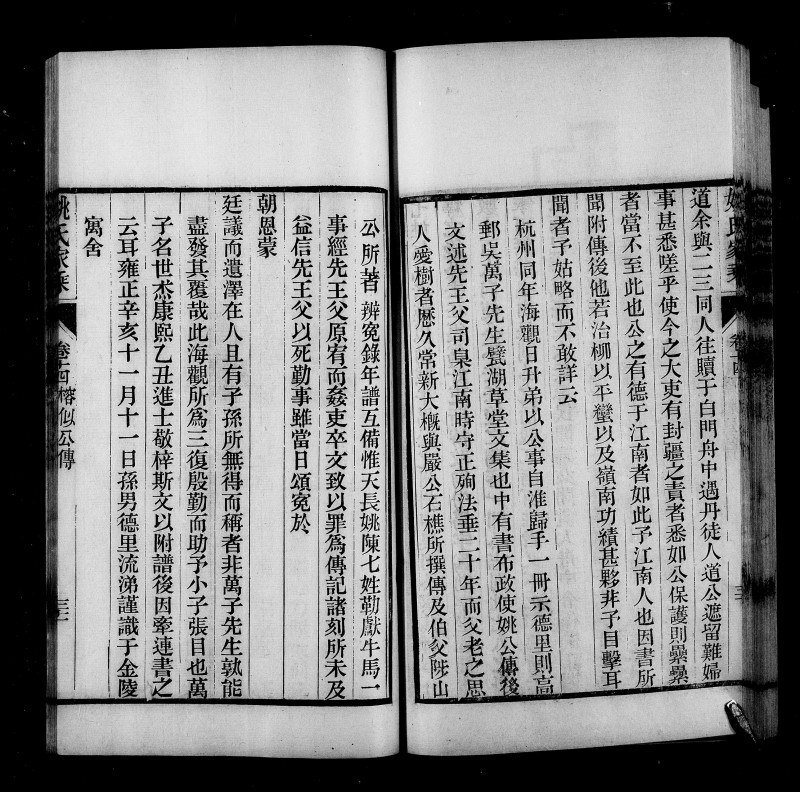 姚氏家乘
卷十四
三
道余與二三同人往贖于白門舟中遇丹徒人道公遮留難婦
事甚悉嗟乎使今之大吏有封疆之責者悉如公保護則纍纍
者當不至此也公之有德于江南者如此予江南人也因書所
聞附傳後他若治柳以平蠻以及嶺南功績甚夥非予目擊耳
聞者予姑略而不敢詳云
杭州同年海觀日升弟以公事自淮歸手一冊示德里則高
郵吳萬子先生甓湖草堂文集也中有書布政使姚公傳後
文述先王父司臬江南時守正殉法垂二十年而父老之思
人愛樹者歷久常新大槪與嚴公石樵所撰傳及伯父陟山
公所著辨冤錄年譜互備惟天長姚陳七姓勒獻牛馬一
事經先王父原宥而姦吏卒文致以罪爲傳記諸刻所未及
益信先王父以死勤事雖當日頌冤於
朝恩蒙
廷議而遺澤在人且有子孫所無得而稱者非萬子先生孰能
盡發其覆哉此海觀所爲三復殷勤而助予小子張目也萬
子名世杰康熙乙丑進士敬梓斯文以附譜後因牽連書之
云耳雍正辛亥十一月十一日孫男德里流涕謹識于金陵
寓舍
姚氏家乘
卷十四 榕似公傳